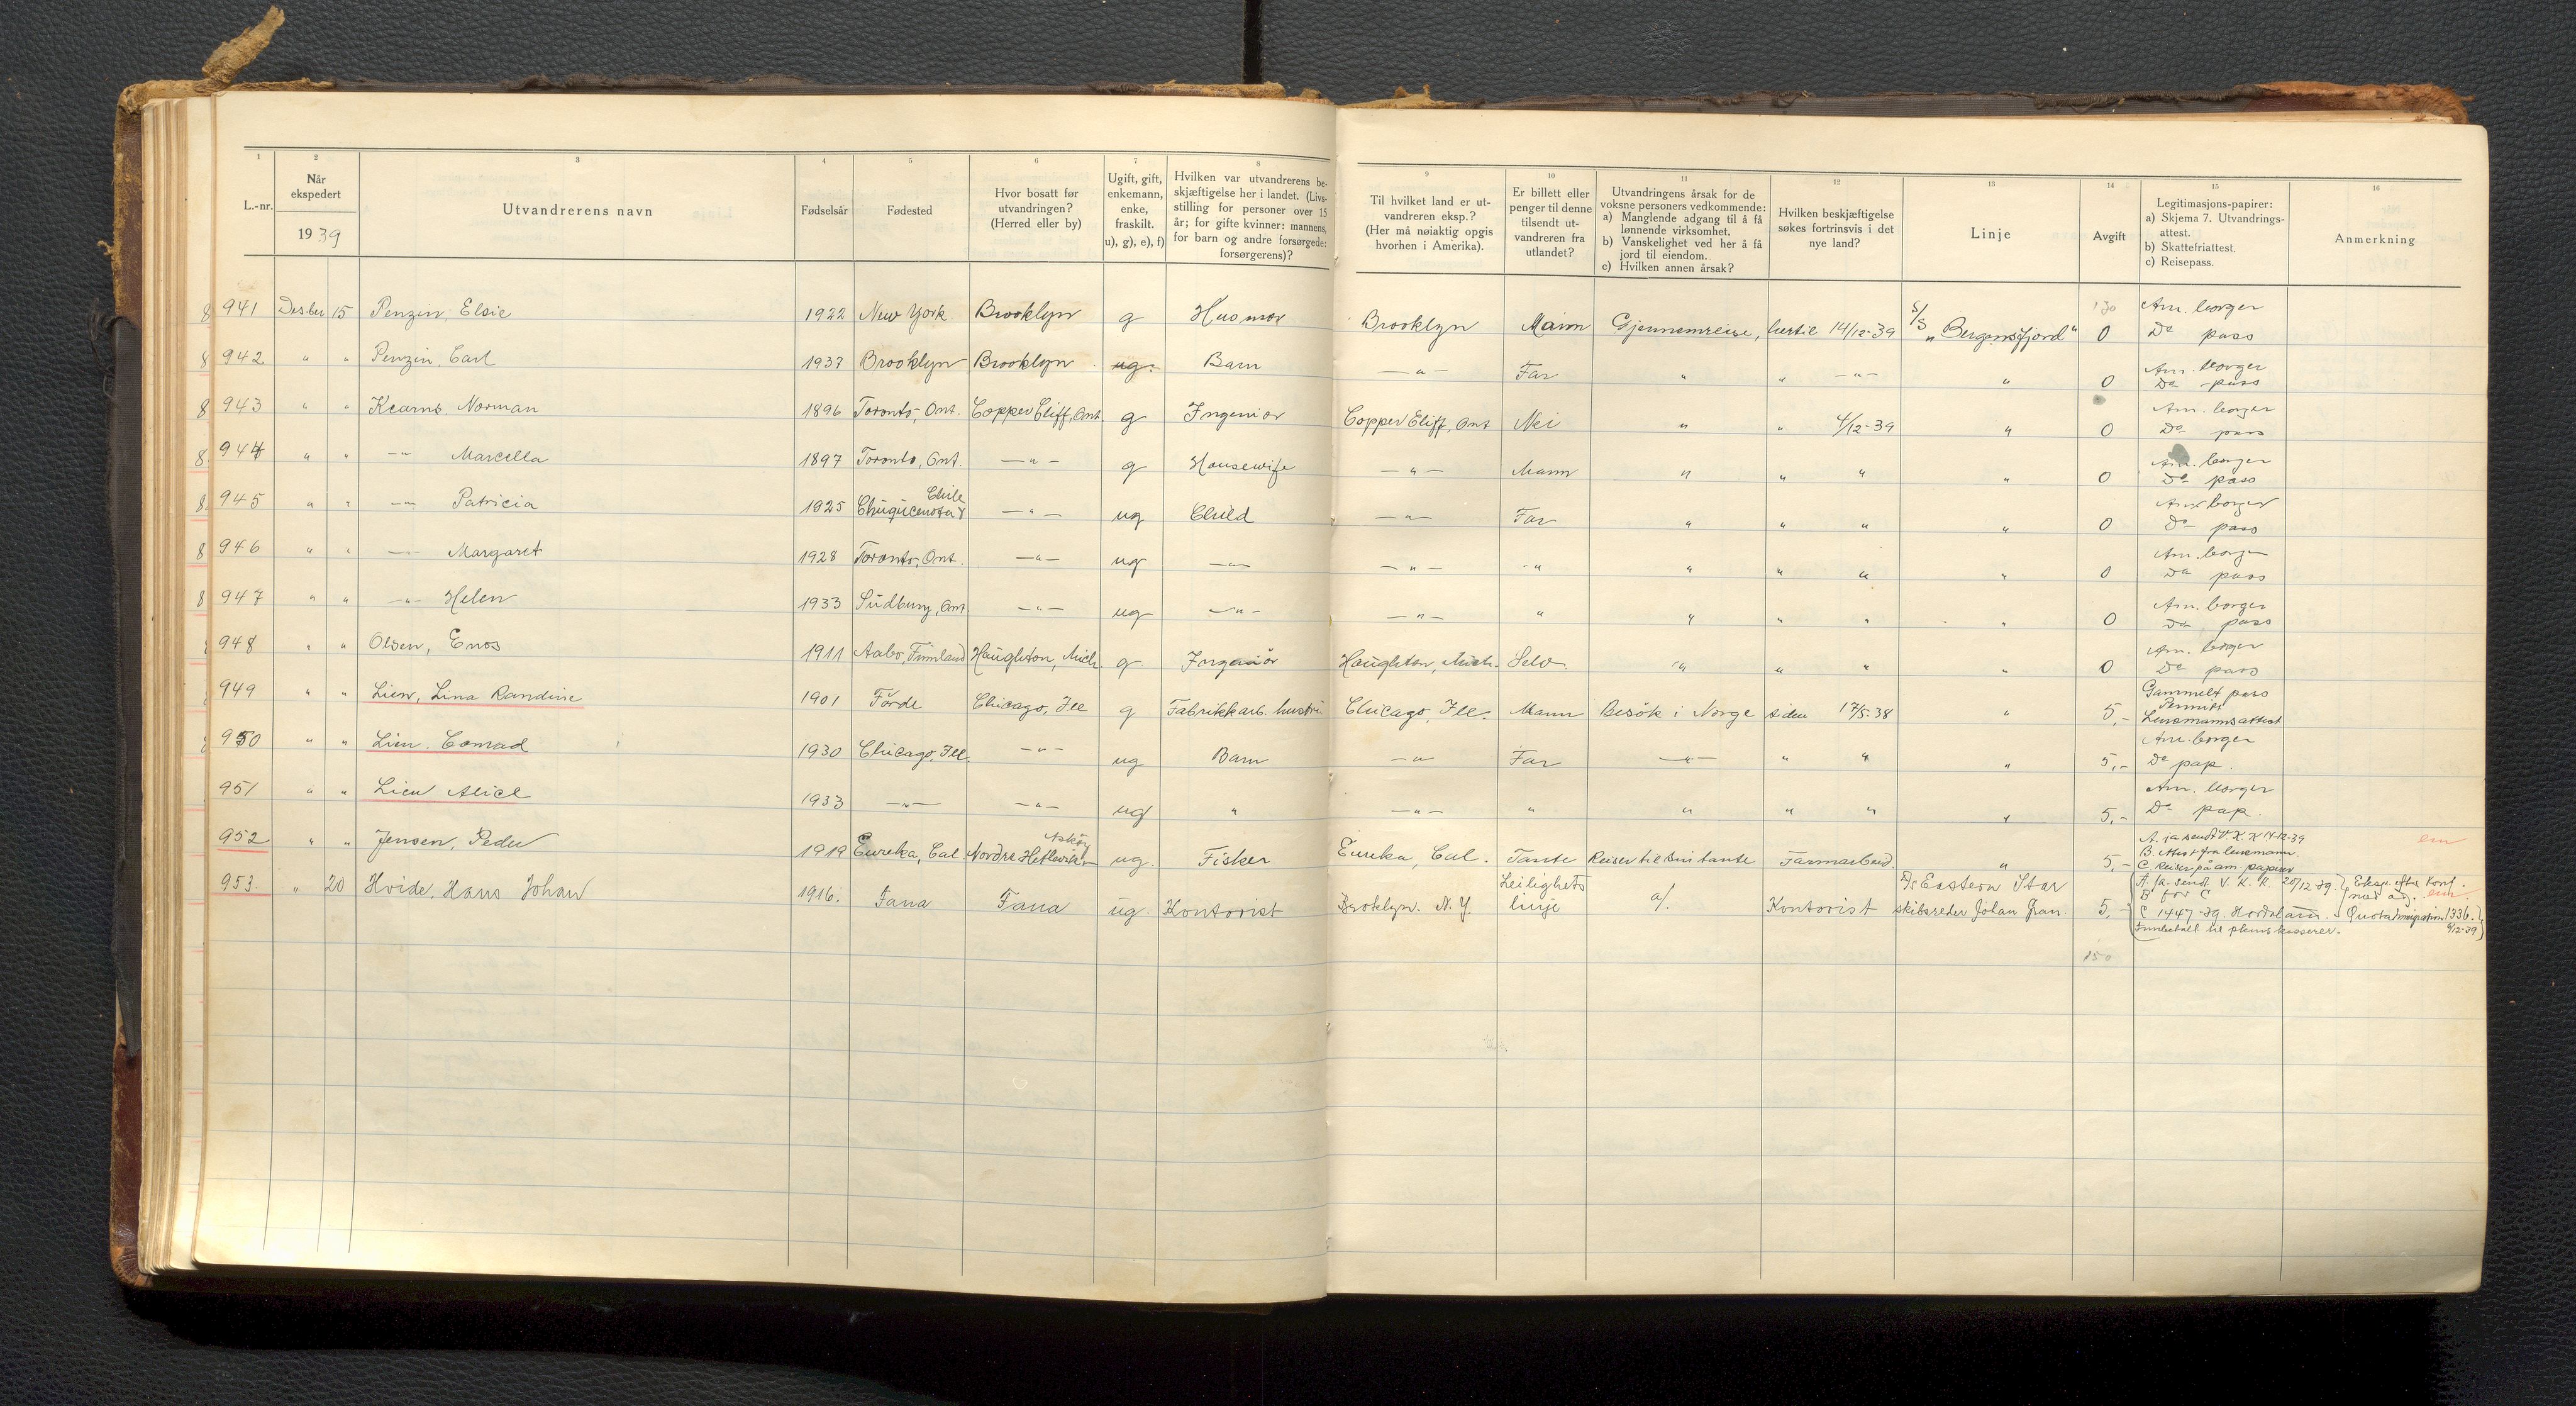 1 2 3 4 5 6 7 8 9 10 11 12 13 14 15 16
L.-nr.
Når
ekspedert
1939
Utvandrerens navn
Fødselsår
Fødested
Hvor bosatt før
utvandringen?
(Herred eller by)
Ugift, gift,
enkemann,
enke,
fraskilt.
u), g), e), f)
Hvilken var utvandrerens be-
skjæftigelse her i landet. (Livs-
stilling for personer over 15
år; for gifte kvinner: mannens,
for barn og andre forsørgede:
forsørgerens)?
Til hvilket land er ut-
vandreren eksp.?
(Her må nøiaktig opgis
hvorhen i Amerika).
Er billett eller
penger til denne
tilsendt ut-
vandreren fra
utlandet?
Utvandringens årsak for de
voksne personers vedkommende:
a) Manglende adgang til å få
lønnende virksomhet.
b) Vanskelighet ved her å få
jord til eiendom.
c) Hvilken annen årsak?
Hvilken beskjæftigelse
søkes fortrinsvis i det
nye land?
Linje
Avgift
Legitimasjons-papirer:
a) Skjema 7. Utvandrings-
attest.
b) Skattefriattest.
c) Reisepass.
Anmerkning
8 941 Desber 15 Penzin, Elsie 1922 New York Brooklyn g Husmor Brooklyn Mann Gjennemreise, hertil 14/12-39 S/S „Bergensfjord" 130 0 Am. borger
Do pass
8 942 " " Penzin, Carl 1937 Brooklyn Brooklyn ug. Barn —"— Far " " —"— " 0 Am. borger
Do pass
8 943 " " Kearns, Norman 1896 Toronto, Ont. Copper Cliff, Ont. g Ingeniør Copper Cliff, Ont Nei " " 4/12-39 " 0 Am. borger
Do pass
8 944 " " —"— Marcella 1897 Toronto, Ont. —"— g Housewife —"— Mann " " " " 0 Am. borger
Do pass
8 945 " " —"— Patricia 1925 Chuquicamata Chile —"— ug Child —"— Far " " " " 0 Am borger
Do pass
8 946 " " —"— Margaret 1928 Toronto, Ont. —"— ug —"— —"— -" " " " " 0 Am. borger
Do pass
8 947 " " —"— Helen 1933 Sudbury, Ont —"— ug —"— —"— " " " " " 0 Am. borger
Do pass
948 " " Olsen, Enos 1911 Aabo, Finnland Haughton, Mich g Ingeniør Haughton, Mich. Selv. " " " " 0 Am. borger
Do pass
949 " " Lien, Lina Randine 1901 Førde Chicago, Ill g Fabrikkarb. hustru Chicago, Ill. Mann Besøk i Norge siden 17/5-38 " 5,- Gammelt pass
Permitt
Lensmannsattest
950 " " Lien, Conrad 1930 Chicago, Ill. —"— ug Barn —"— Far —"— " " " 5,- Am. borger
Do pap.
951 " " Lien Alice 1933 —"— —"— ug " —"— " " " " " 5,- Am. borger
Do pap.
952 " " Jensen, Peder 1919 Eureka, Cal. Nordre Askøy ug. Fisker Eureka, Cal. Tante Reiser til sin tante Farmarbeid " 5,- A. ja sendt V. K. K 14-12-39
B. Attest fra lensmann
C. Reiser på am. papirer
em
953. " 20 Hvide, Hans Johan 1916. Fana Fana ug. Kontorist Broklyn. N. Y. Leilighets
linje a/. Kontorist D/S Eastern Star
skibsreder Johan Gran. 5,- A. ja. sendt V. K. K. 20/12 39. Eksp. efter konf.
B før C
C 1447-39. Hordaland. Quotaimmigration 1336.
6/12-39
em.
150